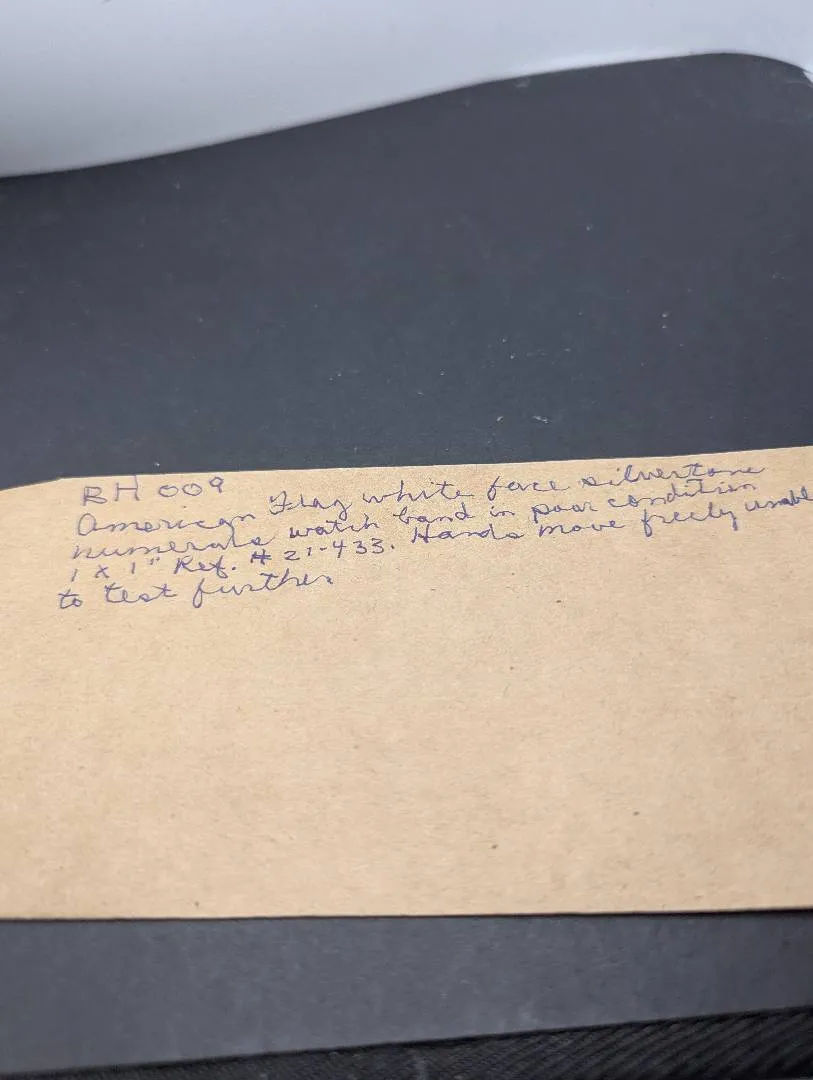 BH 009
American Flag white face silvertone
numerals watch band in poor condition
1 x 1" Ref. # 21-433. Hands move freely unable
to test further